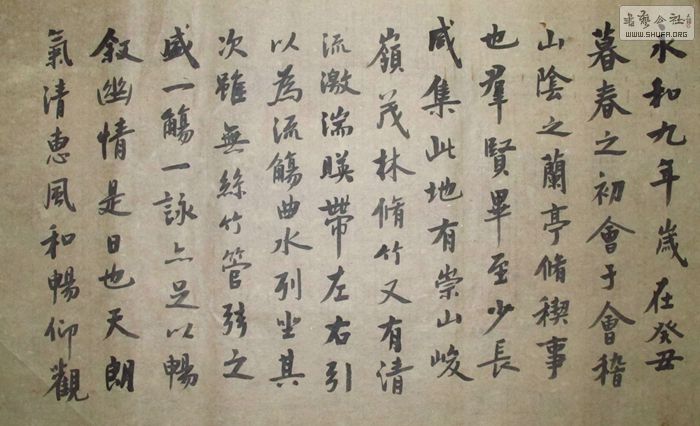 永和九年歲在癸丑
暮春之初會于會稽
山陰之蘭亭脩稧事
也羣賢畢至少長
咸集此地有崇山峻
嶺茂林脩竹又有清
流激湍暎帶左右引
以為流觴曲水列坐其
次雖無絲竹管弦之
盛一觴一詠亦足以暢
敘幽情是日也天朗
氣清惠風和暢仰觀
書藝公社
WWW.SHUFA.ORG